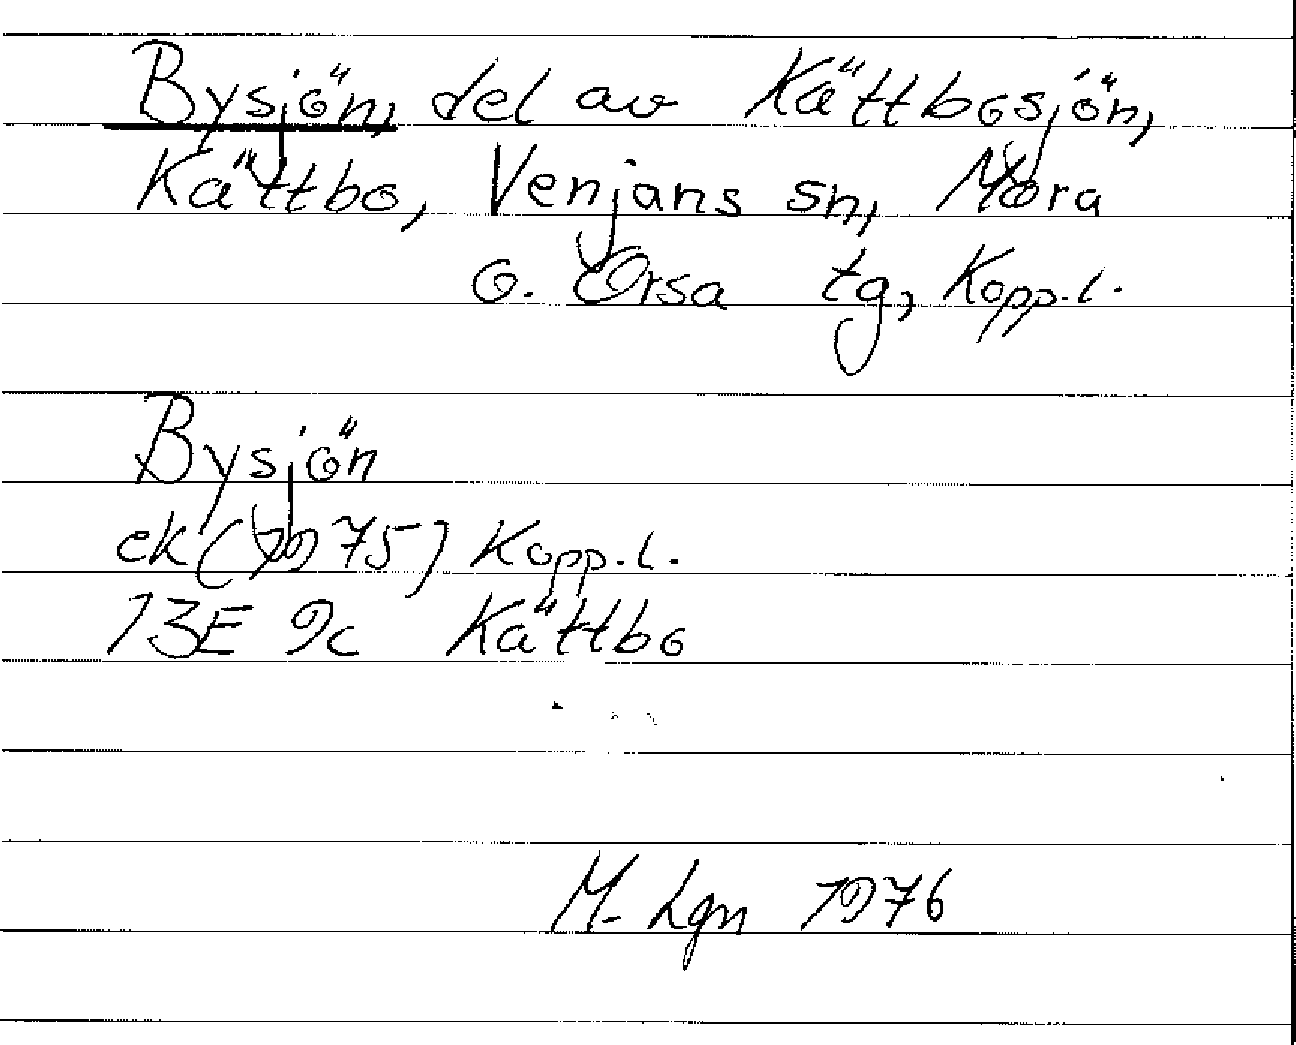 Bysjön, del av Kättbosjön,
Kättbo, Venjans sn, Mora
o. Orsa tg, Kopp.l.
Bysjön
ek (1975) Kopp.l.
13E 9c Kättbo
M. Lgn 1976